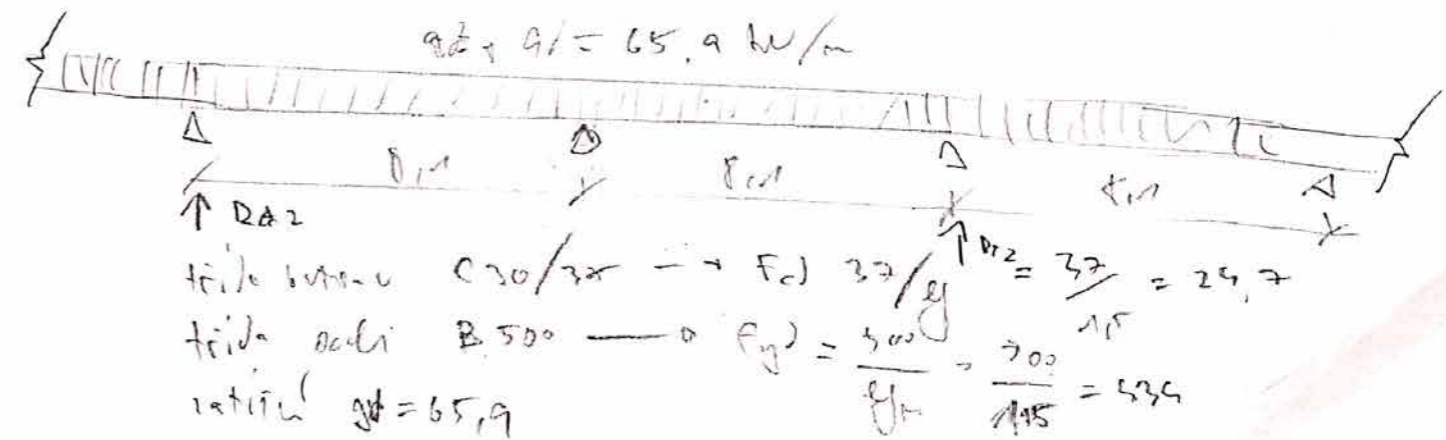 = 65,9 kN/m
8,1 8,1 8,1
třída betonu C30/37 → Fcd 37/γ = 37/1,5 = 24,7
třída oceli B 500 → Fyd = 500/γm = 500/1,15 = 434
zatížení gd = 65,9